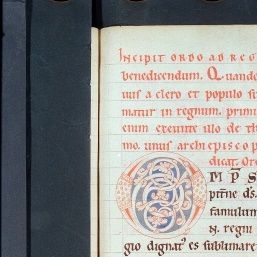 Incipit ordo ad reg
benedicendum. Quando
uus a clero et populo su
matur in regnum. primu
enim exeunte illo de th
mo. unus archiepiscop
dicat. Oro
M P S
pitne ds.
famulum
N. regni
gio dignat' es sublimare